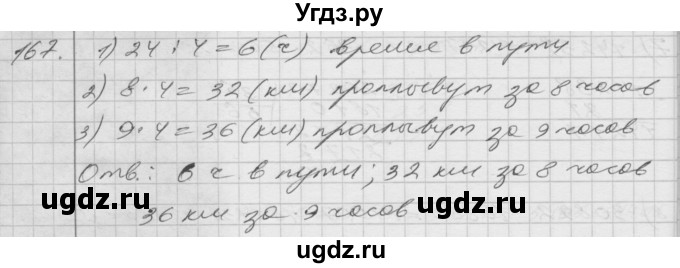 Угдз.ру
167. 1) 24 : 4 = 6 (ч) время в пути
2) 8 · 4 = 32 (км) проплывут за 8 часов
3) 9 · 4 = 36 (км) проплывут за 9 часов
Отв.: 6 ч в пути; 32 км за 8 часов
36 км за 9 часов
ugdz.ru
ugdz.ru
ugdz.ru